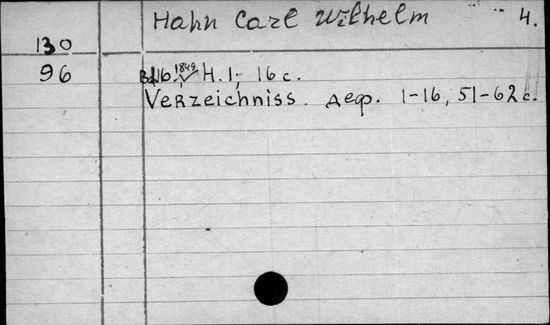 Hahn Carl Wilhelm 4.
130
96 1849 H. I; 16 c.
Verzeichniss. деф. 1-16, 51-62 с.